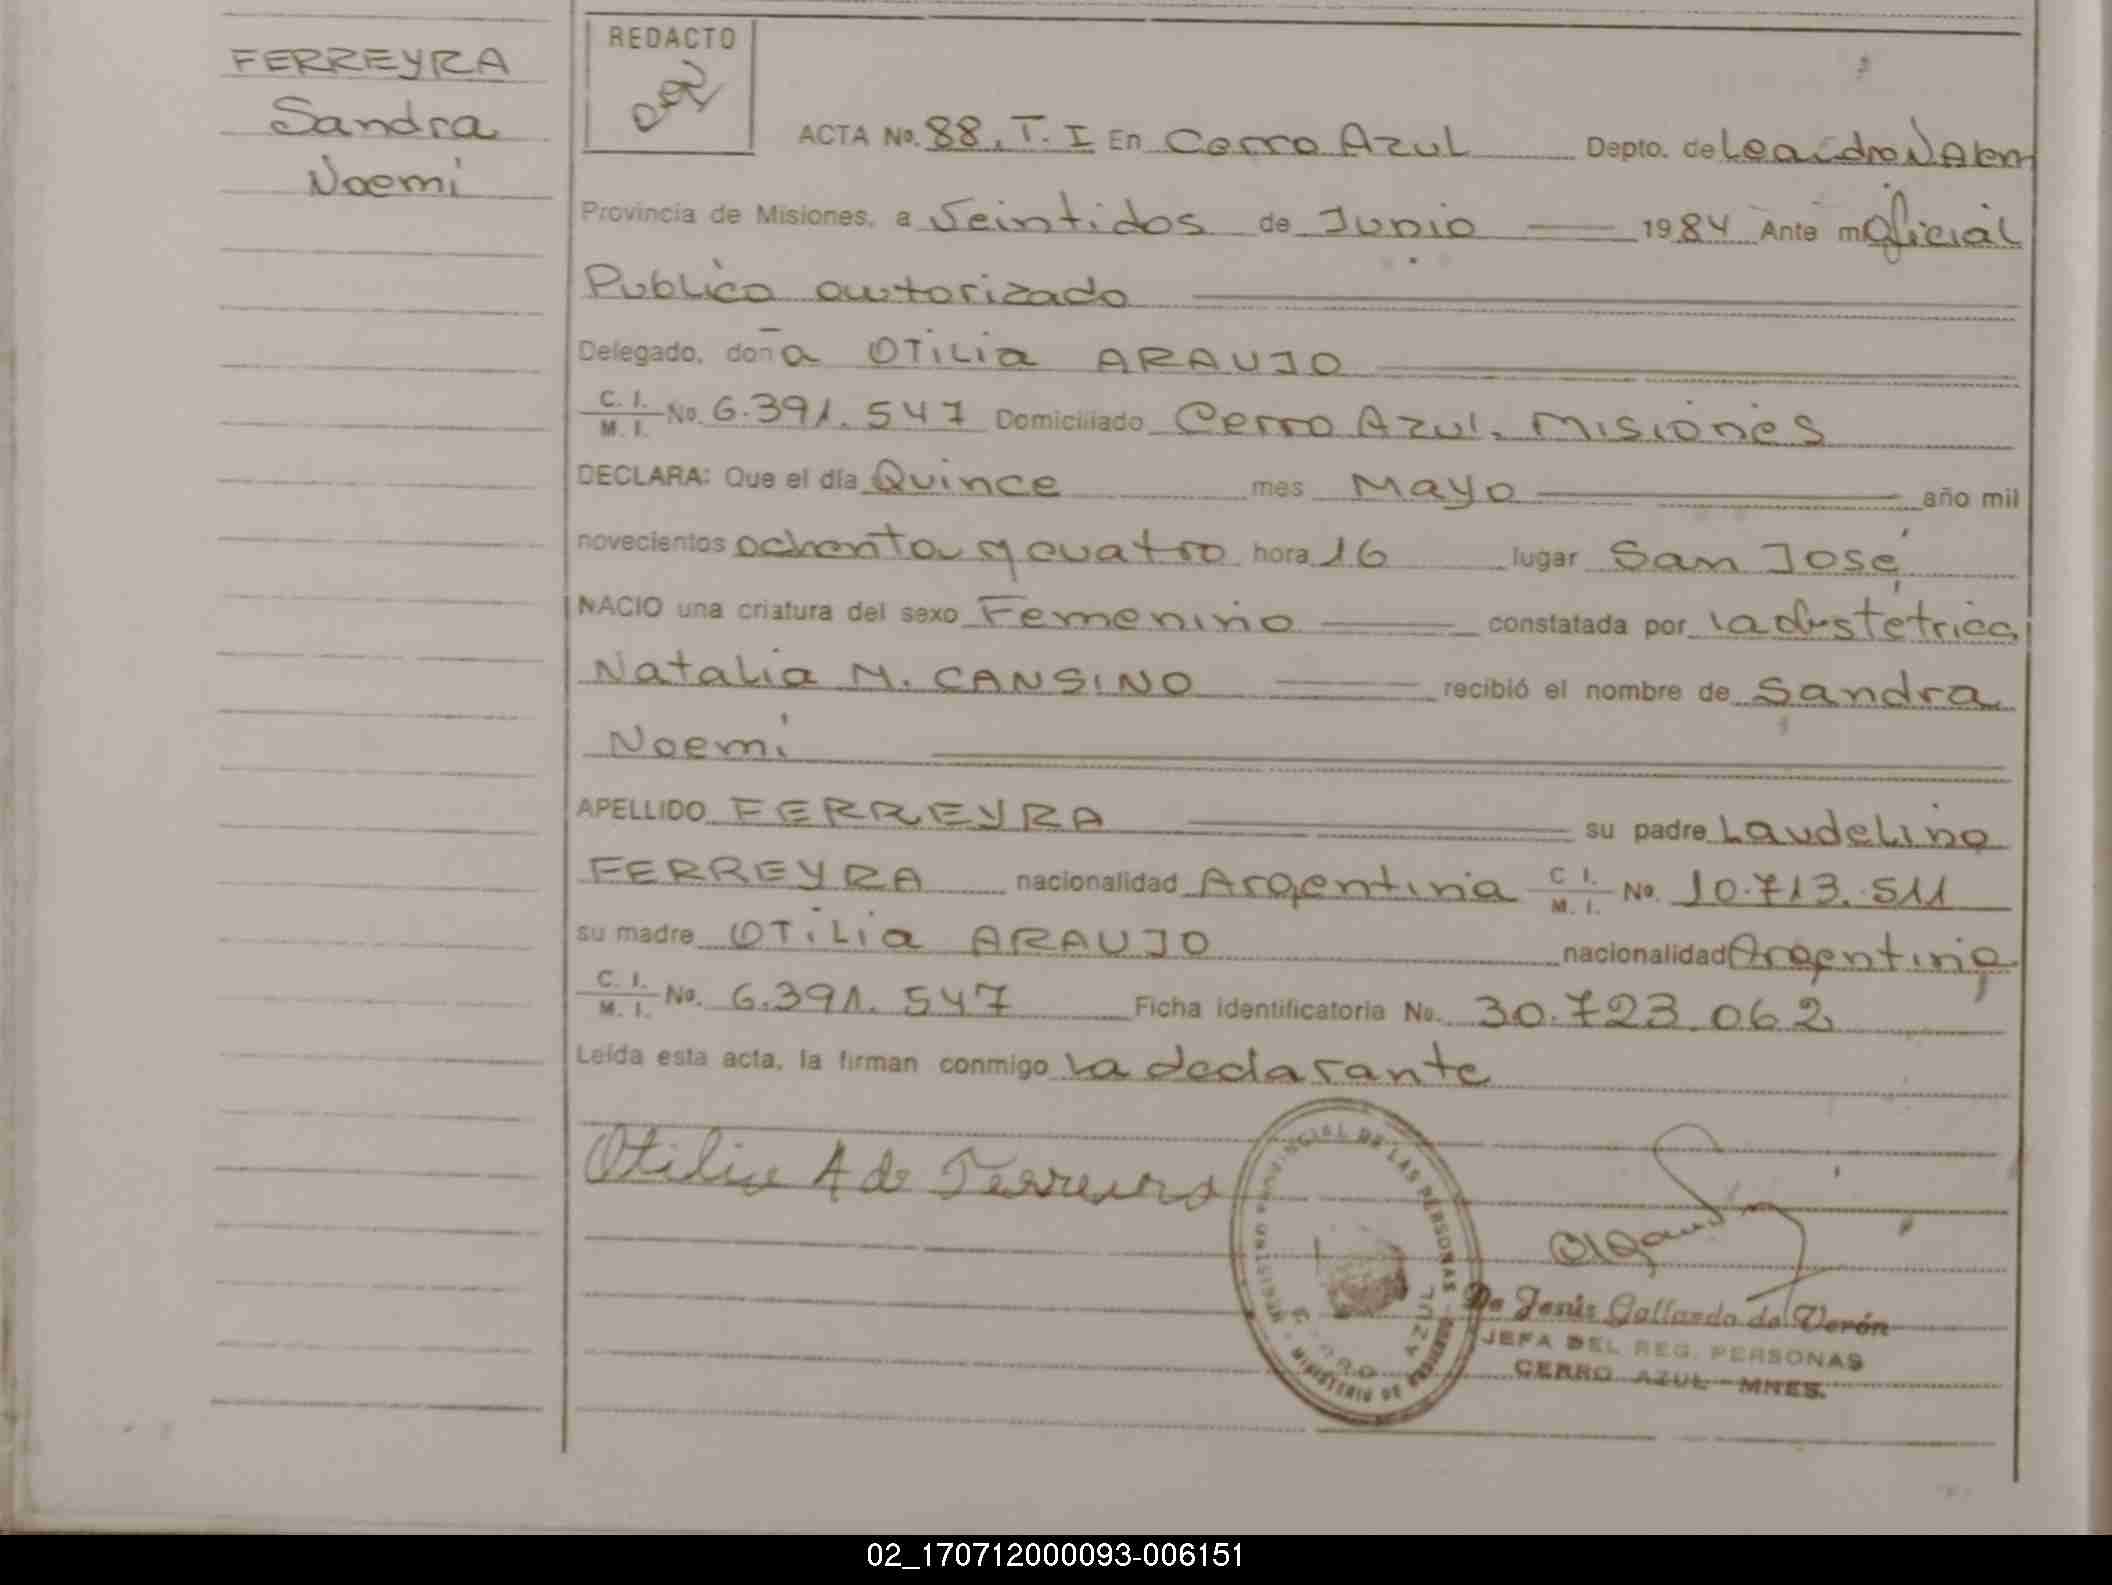 FERREYRA
Sandra
Noemí
REDACTO
ACTA No. 88, T. I En Cerro Azul Depto. de Leandro N Alem
Provincia de Misiones, a Veintidos de Junio 1984 Ante mi Oficial
Publico autorizado
Delegado, doña OTiLia ARAUJO
C. I. / M. I. No. 6.391.547 Domiciliado Cerro Azul. Misiones
DECLARA: Que el día Quince mes Mayo año mil
novecientos ochenta y cuatro hora 16 lugar San José
NACIO una criatura del sexo Femenino constatada por la obstétrica
Natalia M. CANSINO recibió el nombre de Sandra
Noemí
APELLIDO FERREYRA su padre Laudelino
FERREYRA nacionalidad Argentina C. I. / M. I. No. 10.713.511
su madre OTiLia ARAUJO nacionalidad Argentina
C. I. / M. I. No. 6.391.547 Ficha identificatoria No. 30.723.062
Leída esta acta, la firman conmigo la declarante
Otilia A de Ferreira
PROVINCIAL DE LAS PERSONAS
MINISTERIO DE
CERRO AZUL
Gallardo de Verón
JEFA DEL REG. PERSONAS
CERRO AZUL - MNES.
02_170712000093-006151